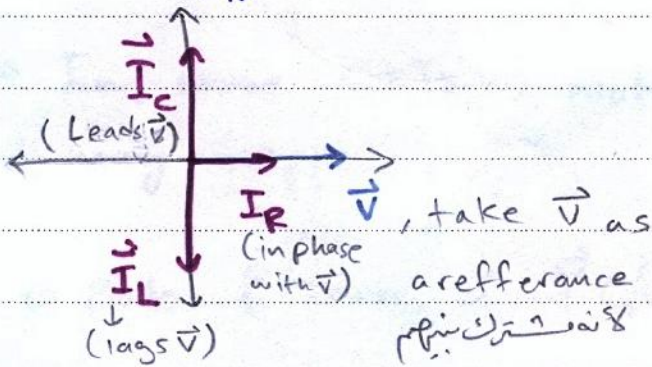 I⃗c
(Leads v⃗)
I_R
V⃗, take V⃗ as
(in phase
with v⃗)
a refferance
I⃗_L
(lags v⃗)
لأنه مشترك بينهم